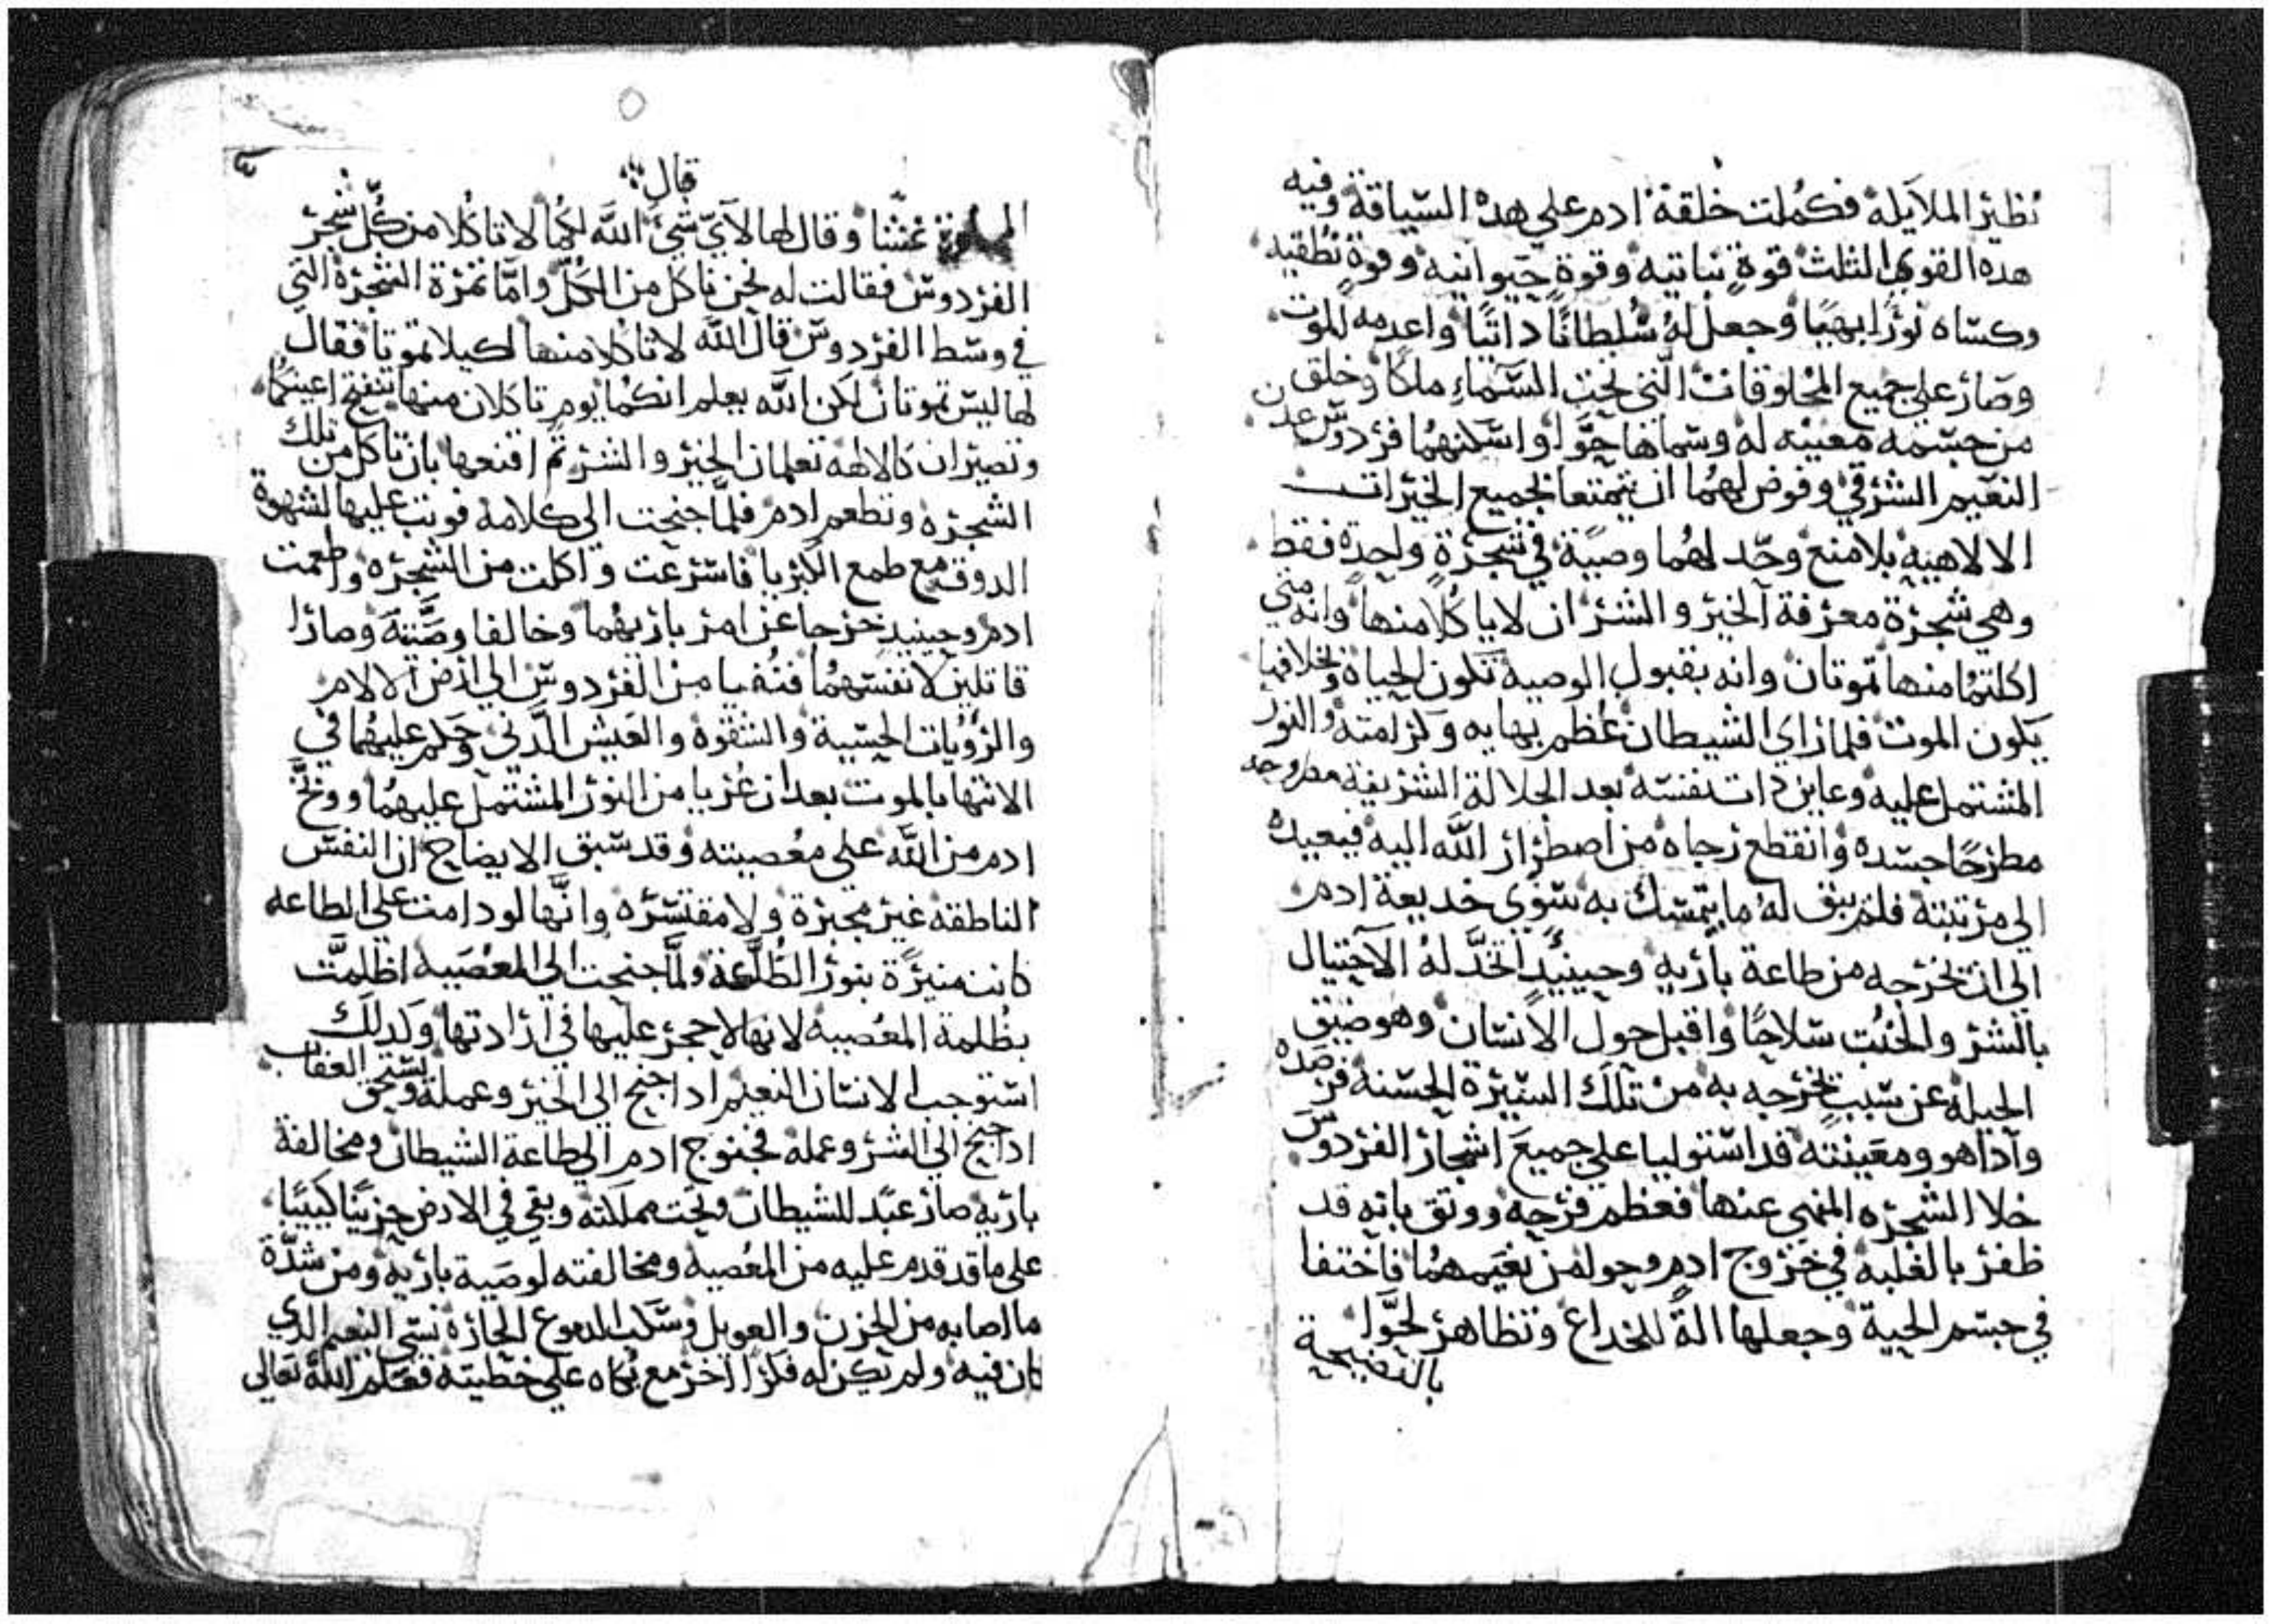 نظير الملايكة فكملت خلقة ادم علي هده السياقة وفيه
هده القوي الثلث قوةٍ نباتيه وقوةٍ حيوانيه وقوةٍ نطقيه
وكساه نورًا بهيًا وجعل لهُ سُلطانًا داتيًا واعدمه الموت
وصار علي جميع المخلوقات التي تحت السماءِ ملكًا وخلق
من جسمه معينه له وسماها حوَّا واسكنهما فردوس عدن
النعيم الشرقي وفوض لهما ان يتمتعا بجميع الخيرات
الالاهيه بلا منع وحد لهما وصيَّة في شجرةٍ واحدة فقط
وهي شجرة معرفة الخير والشر ان لا ياكلا منها وانه متي
اكلتما منها تموتان وانه بقبول الوصية تكون الحياة وبخلافها
يكون الموت فلما راي الشيطان عُظم بهايه وكرامته والنور
المشتمل عليه وعاين دات نفسه بعد الجلالة الشريفة مطروحه
مطرحًا جسده وانقطع رجاه من اصطرار الله اليه فيعيده
الي مرتبته فلم يبق لهُ ما يتمسك به سوي خديعة ادم
الي ان يخرجه من طاعة باريه وحينيدٍ اتخد لهُ الاحتيال
بالشر والخبُت سلاحًا واقبل حول الانسان وهو ضيق
الحيله عن سببٍ يخرجه به من تلك السيرة الحسنه فرصده
وادا هو ومعينته قد استوليا علي جميع اشجار الفردوس
خلا الشجره المنهي عنها فعظم فرحه ووثق بانه قد
ظفر بالغلبه في خروج ادم وحوا من نعيمهما فاختفا
في جسم الحية وجعلها الة للخداع وتظاهر لحوَّا
بالنصيحية
قال
غشًا وقال لها لاي شيء الله لكما لا تاكلا من كل شجر
الفردوس فقالت له نحن ناكل من الكل واما ثمرة الشجرة التي
في وسط الفردوس قال الله لا تاكلا منها لكيلا تموتا فقال
لها ليس تموتان لكن الله يعلم انكما يوم تاكلان منها تنفتح اعينكما
وتصيران كالالهة تعلمان الخير والشر ثم اقنعها بان تاكل من تلك
الشجره وتطعم ادم فلما جنحت الي كلامه فوثبت عليها الشهوة
الدوقه مع طمع الكبريا فاسرعت واكلت من الشجره واطعمت
ادم وحينيدٍ خرجا عن امر باريهما وخالفا وصيته وصارا
قاتلين لانفسهما فنُفيا من الفردوس الي ارض الالام
والرؤيات الحسية والشقوة والعيش الدني وحكم عليهما في
الانتها بالموت بعد ان عُريا من النور المشتمل عليهما ووبخ
ادم من الله علي معصيته وقد سبق الايضاح ان النفس
الناطقة غير مجبرة ولا مقتسره وانها لو دامت علي الطاعه
كانت منيرًة بنور الطاعة ولما جنحت الي المعصيه اظلمت
بظلمة المعصيه لانها لا حجر عليها في ارادتها وكدلك
استوجب الانسان النعيم ادا جنح الي الخير وعمله ويستحق العقاب
ادا جنح الي الشر وعمله فجنوح ادم الي طاعة الشيطان ومخالفة
باريه صار عبد للشيطان وتحت مملكته وبقي في الارض حزينًا كييبًا
علي ما قد قدم عليه من المعصيه ومخالفته لوصية باريه ومن شدَّة
ما اصابه من الحزن والعويل وسكب الدموع الحارة نسي النعيم الدي
كان فيه ولم تكن له فكرًا اخر مع بكاه علي خطيته فعلم الله تعالي